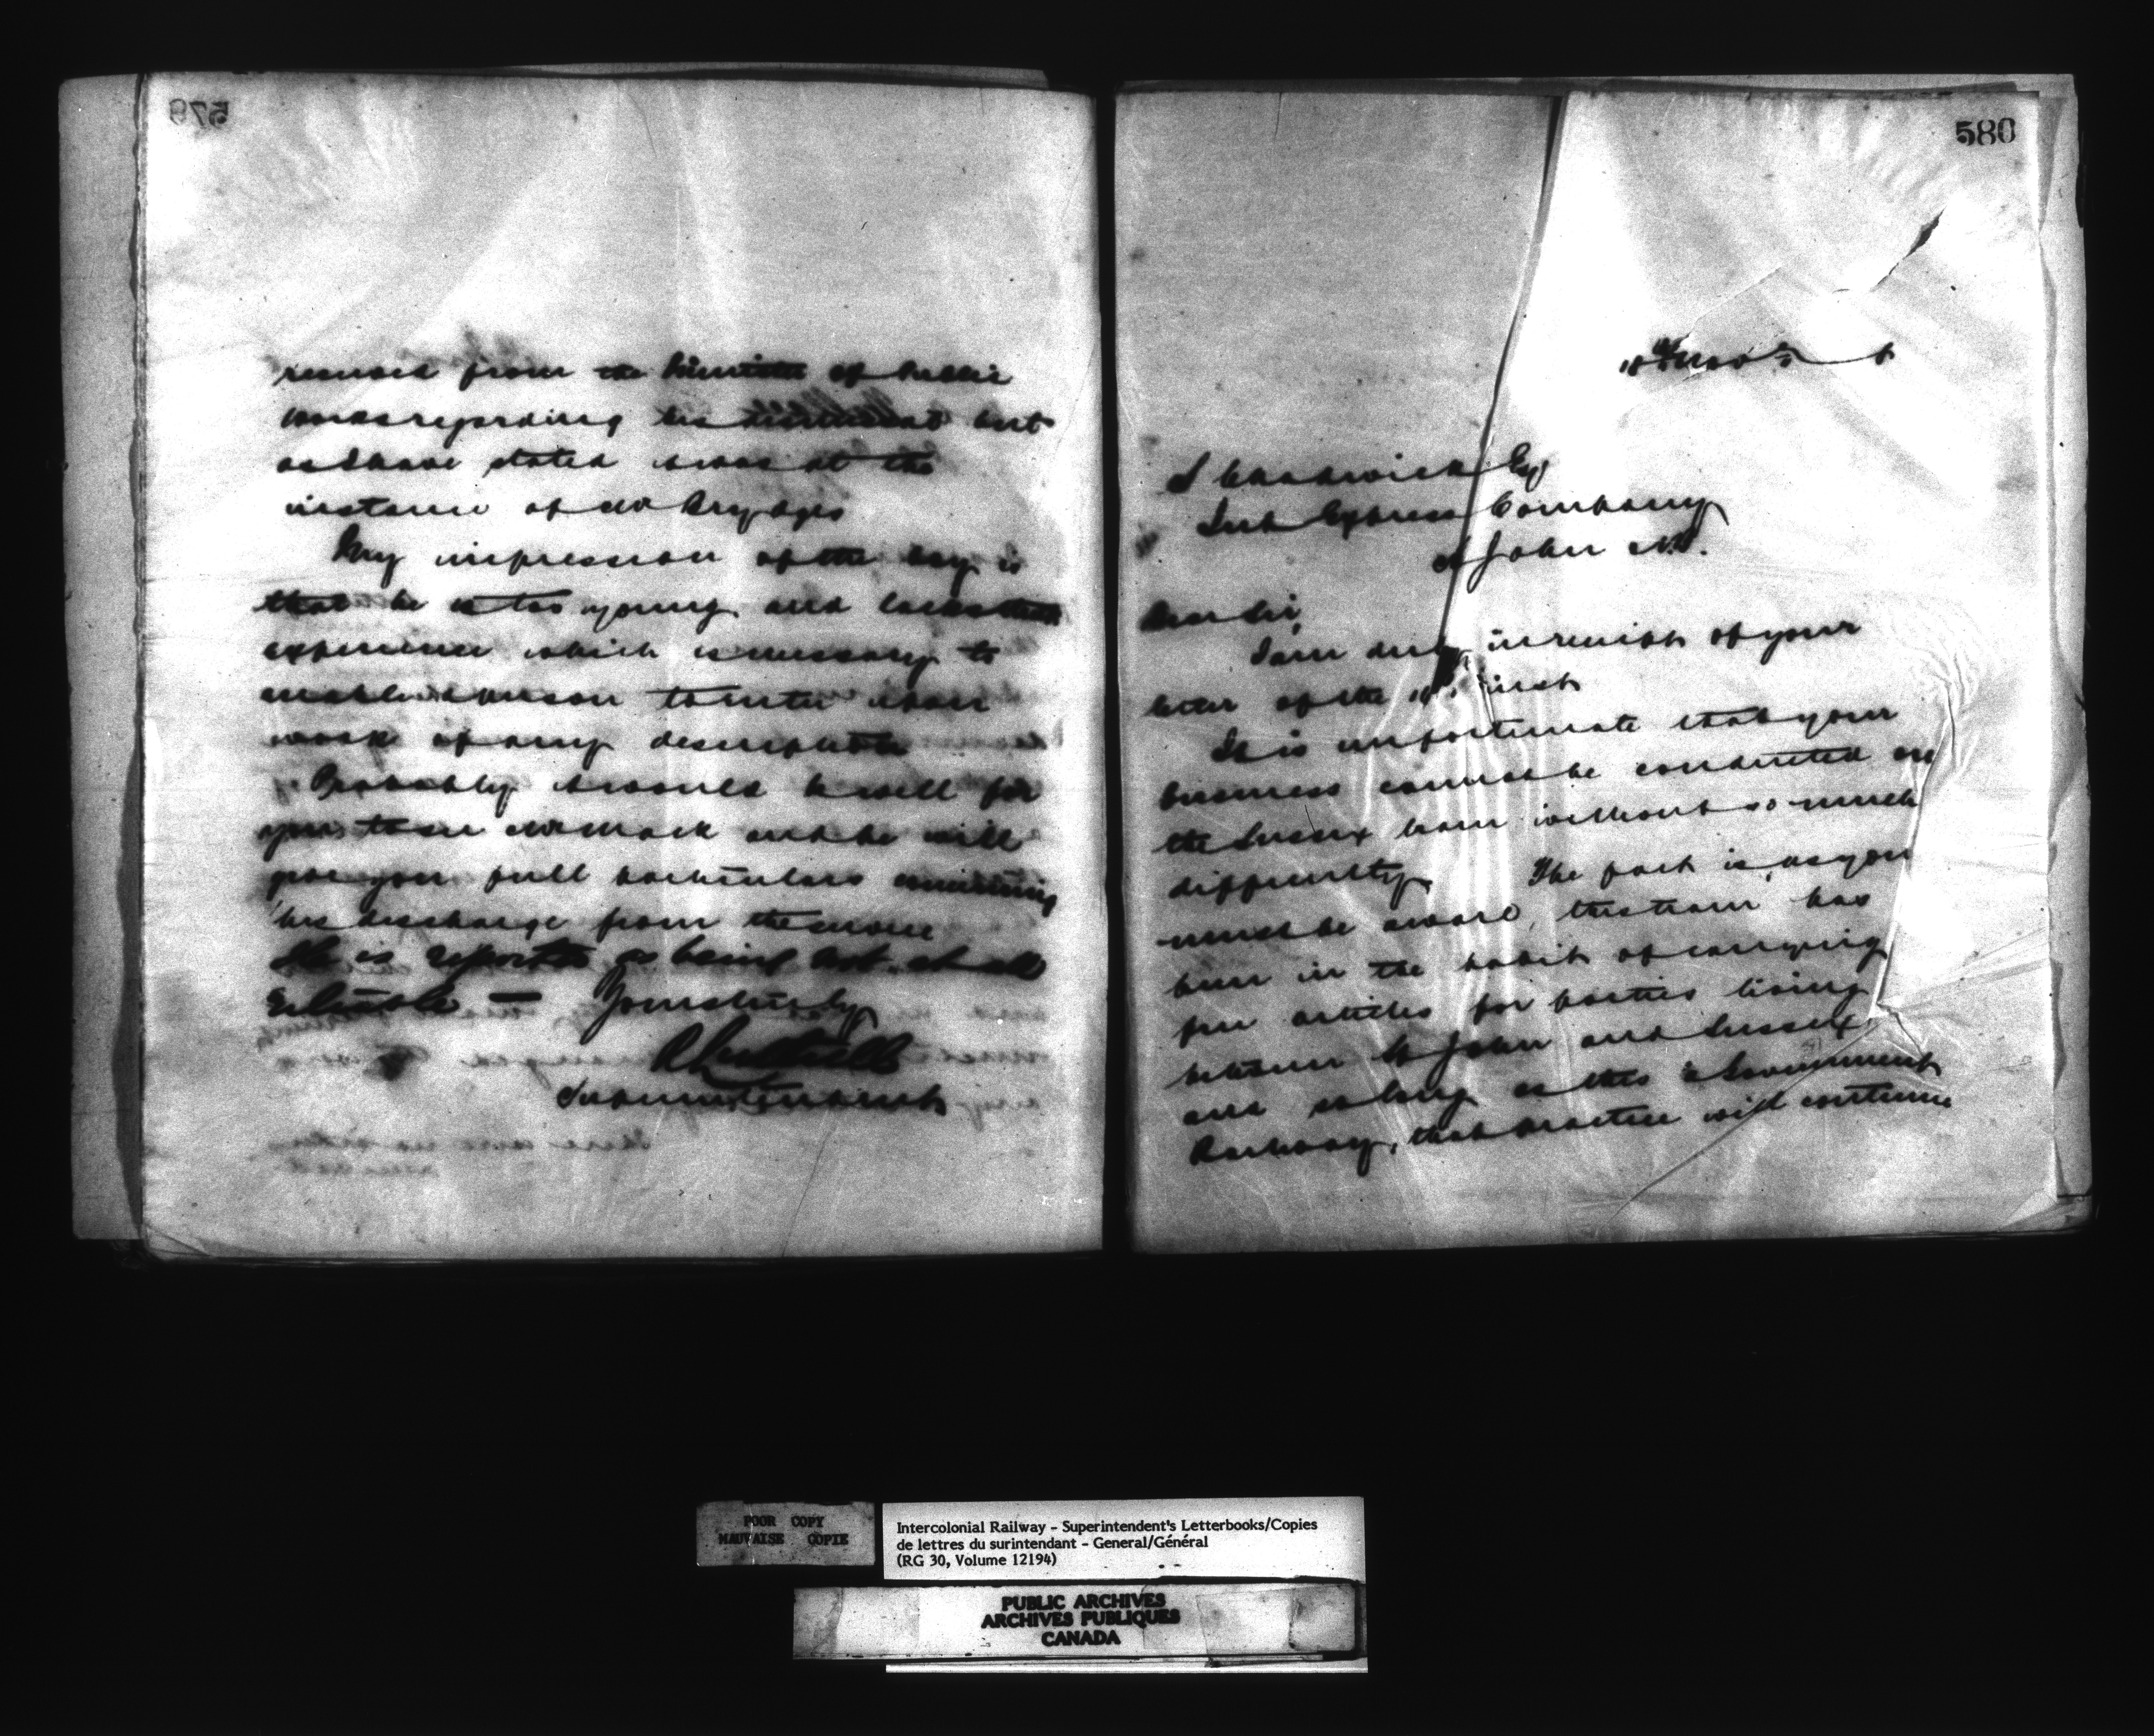 579
received from the Minister of Public
Works regarding his dismissal but
as I have stated it was at the
instance of Mr Brydges
My impression of the boy is
that he is too young and lacks that
experience which is necessary to
enable a person to enter upon
work of any description
Probably it would be well for
you to see and he will
give you full particulars concerning
his discharge from the service
He is reported as being not at all
reliable — Yours truly
Luttrell
Superintendent
580
18th Nov 5
S Chadwick Esq
Supt Express Company
St John N.B.
Dear Sir,
I am duly in receipt of your
letter of the inst
It is unfortunate that your
business cannot be conducted on
the Sussex train without so much
difficulty. The fact is, as you
must be aware, this train has
been in the habit of carrying
free articles for parties living
between St John and Sussex
and so long as this is a Government
Railway, that practice will continue
POOR COPY
MAUVAISE COPIE
Intercolonial Railway - Superintendent's Letterbooks/Copies
de lettres du surintendant - General/Général
(RG 30, Volume 12194)
PUBLIC ARCHIVES
ARCHIVES PUBLIQUES
CANADA